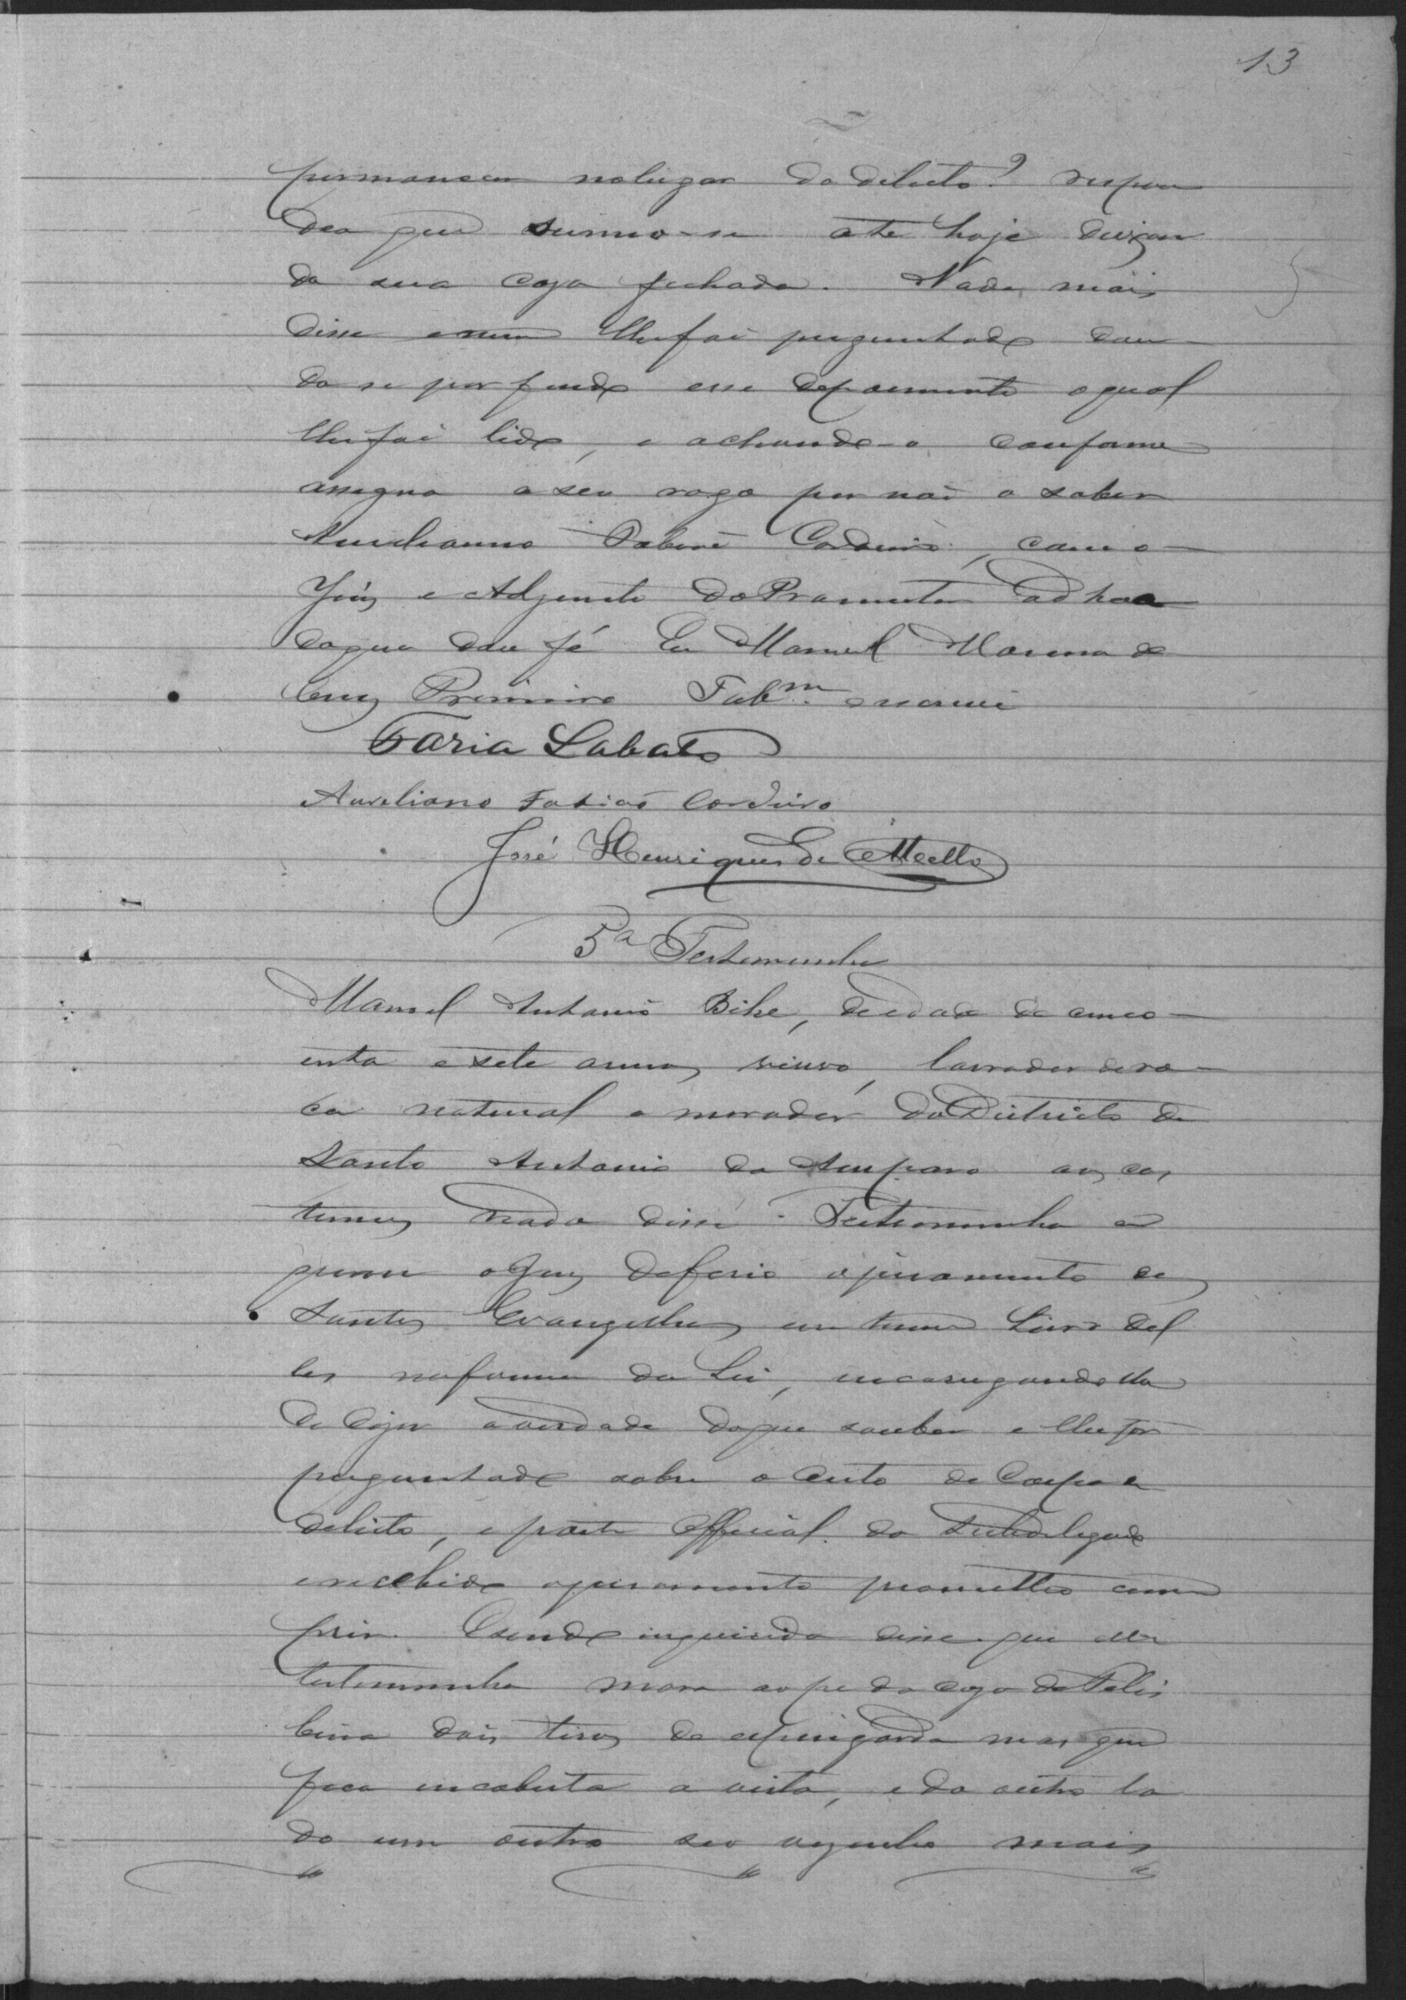 13
permaneceu no lugar do delicto? respon
deo que sumio-se ate hoje deixan
do sua caza fechada. Nada mais
disse e nem lhe foi perguntado dan-
do se por findo esse depoimento o qual
lhe foi lido, e achando-o conforme
assigna a seu rogo por não o saber
Aurelianno Fabião Cordeiro, com o
Juiz e Adjuncto do Promotor ad hoc
do que dou fé Eu Manuel Moreira da
Cruz Primeiro Tabm. escrevi
Faria Lobato
Aureliano Fabião Cordeiro
José Henriques de Mello
5a Testemunha
Manoel Antonio Bihe, de edade de cinco-
enta e sete annos, viuvo, lavrador de ro-
ca natural e morador do Districto de
Santo Antonio do Amparo aos cos
tumes nada disse. Testemunha a
quem o Juiz deferio o juramento aos
Santos Evangelhos em um Livro del
les na forma da Lei, encarregando lhe
de dizer a verdade do que souber e lhe for
perguntado sobre o auto de Corpo de
delicto, e parte official do Subdelegado
e recebido o juramento prometteo cum
prir. E sendo inquirida disse que elle
testemunha mora ao pe da caza de Felis
bina dois tiros de espingarda mas que
fica encoberta a vista, e do outro la
do um outro seo vezinho mais